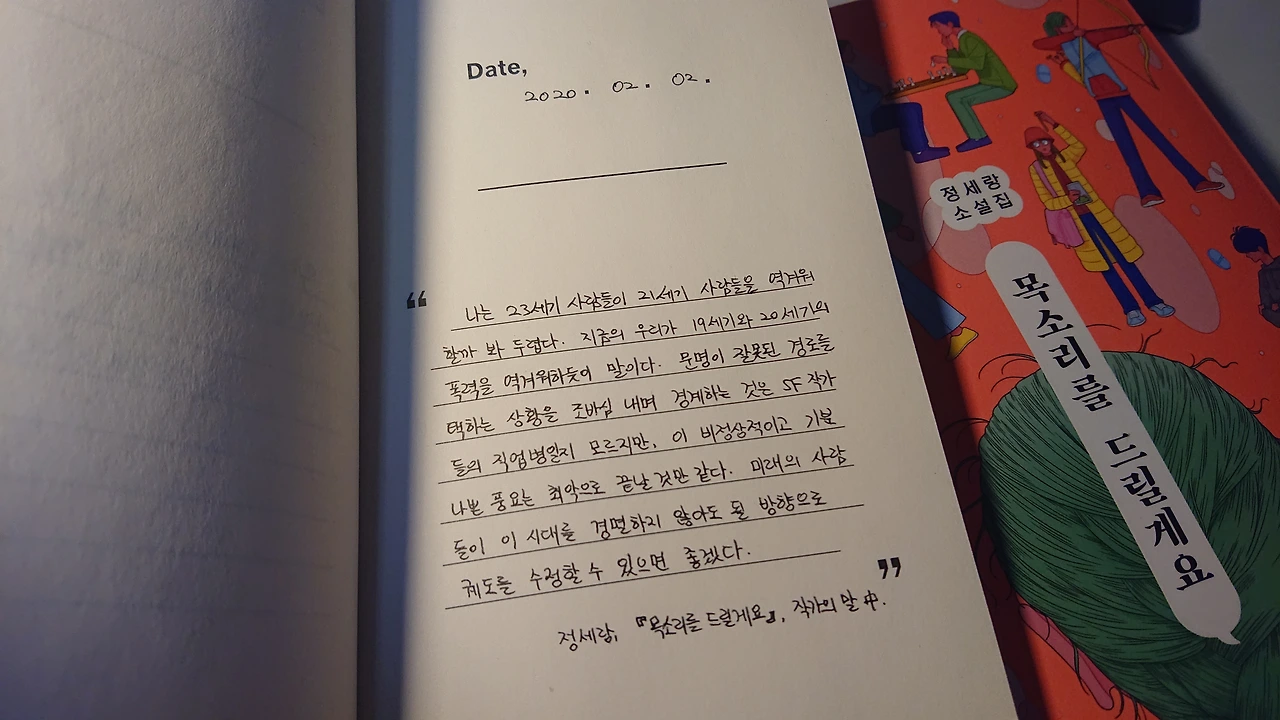 Date,
2020. 02. 02.
“
나는 23세기 사람들이 21세기 사람들을 역겨워
할까 봐 두렵다. 지금의 우리가 19세기와 20세기의
폭력을 역겨워하듯이 말이다. 문명이 잘못된 경로를
택하는 상황을 조바심 내며 경계하는 것은 SF 작가
들의 직업병일지 모르지만, 이 비정상적이고 기분
나쁜 풍요는 최악으로 끝날 것만 같다. 미래의 사람
들이 이 시대를 경멸하지 않아도 될 방향으로
궤도를 수정할 수 있으면 좋겠다.
”
정세랑, 『목소리를 드릴게요』, 작가의 말 中.
정세랑
소설집
목소리를 드릴게요